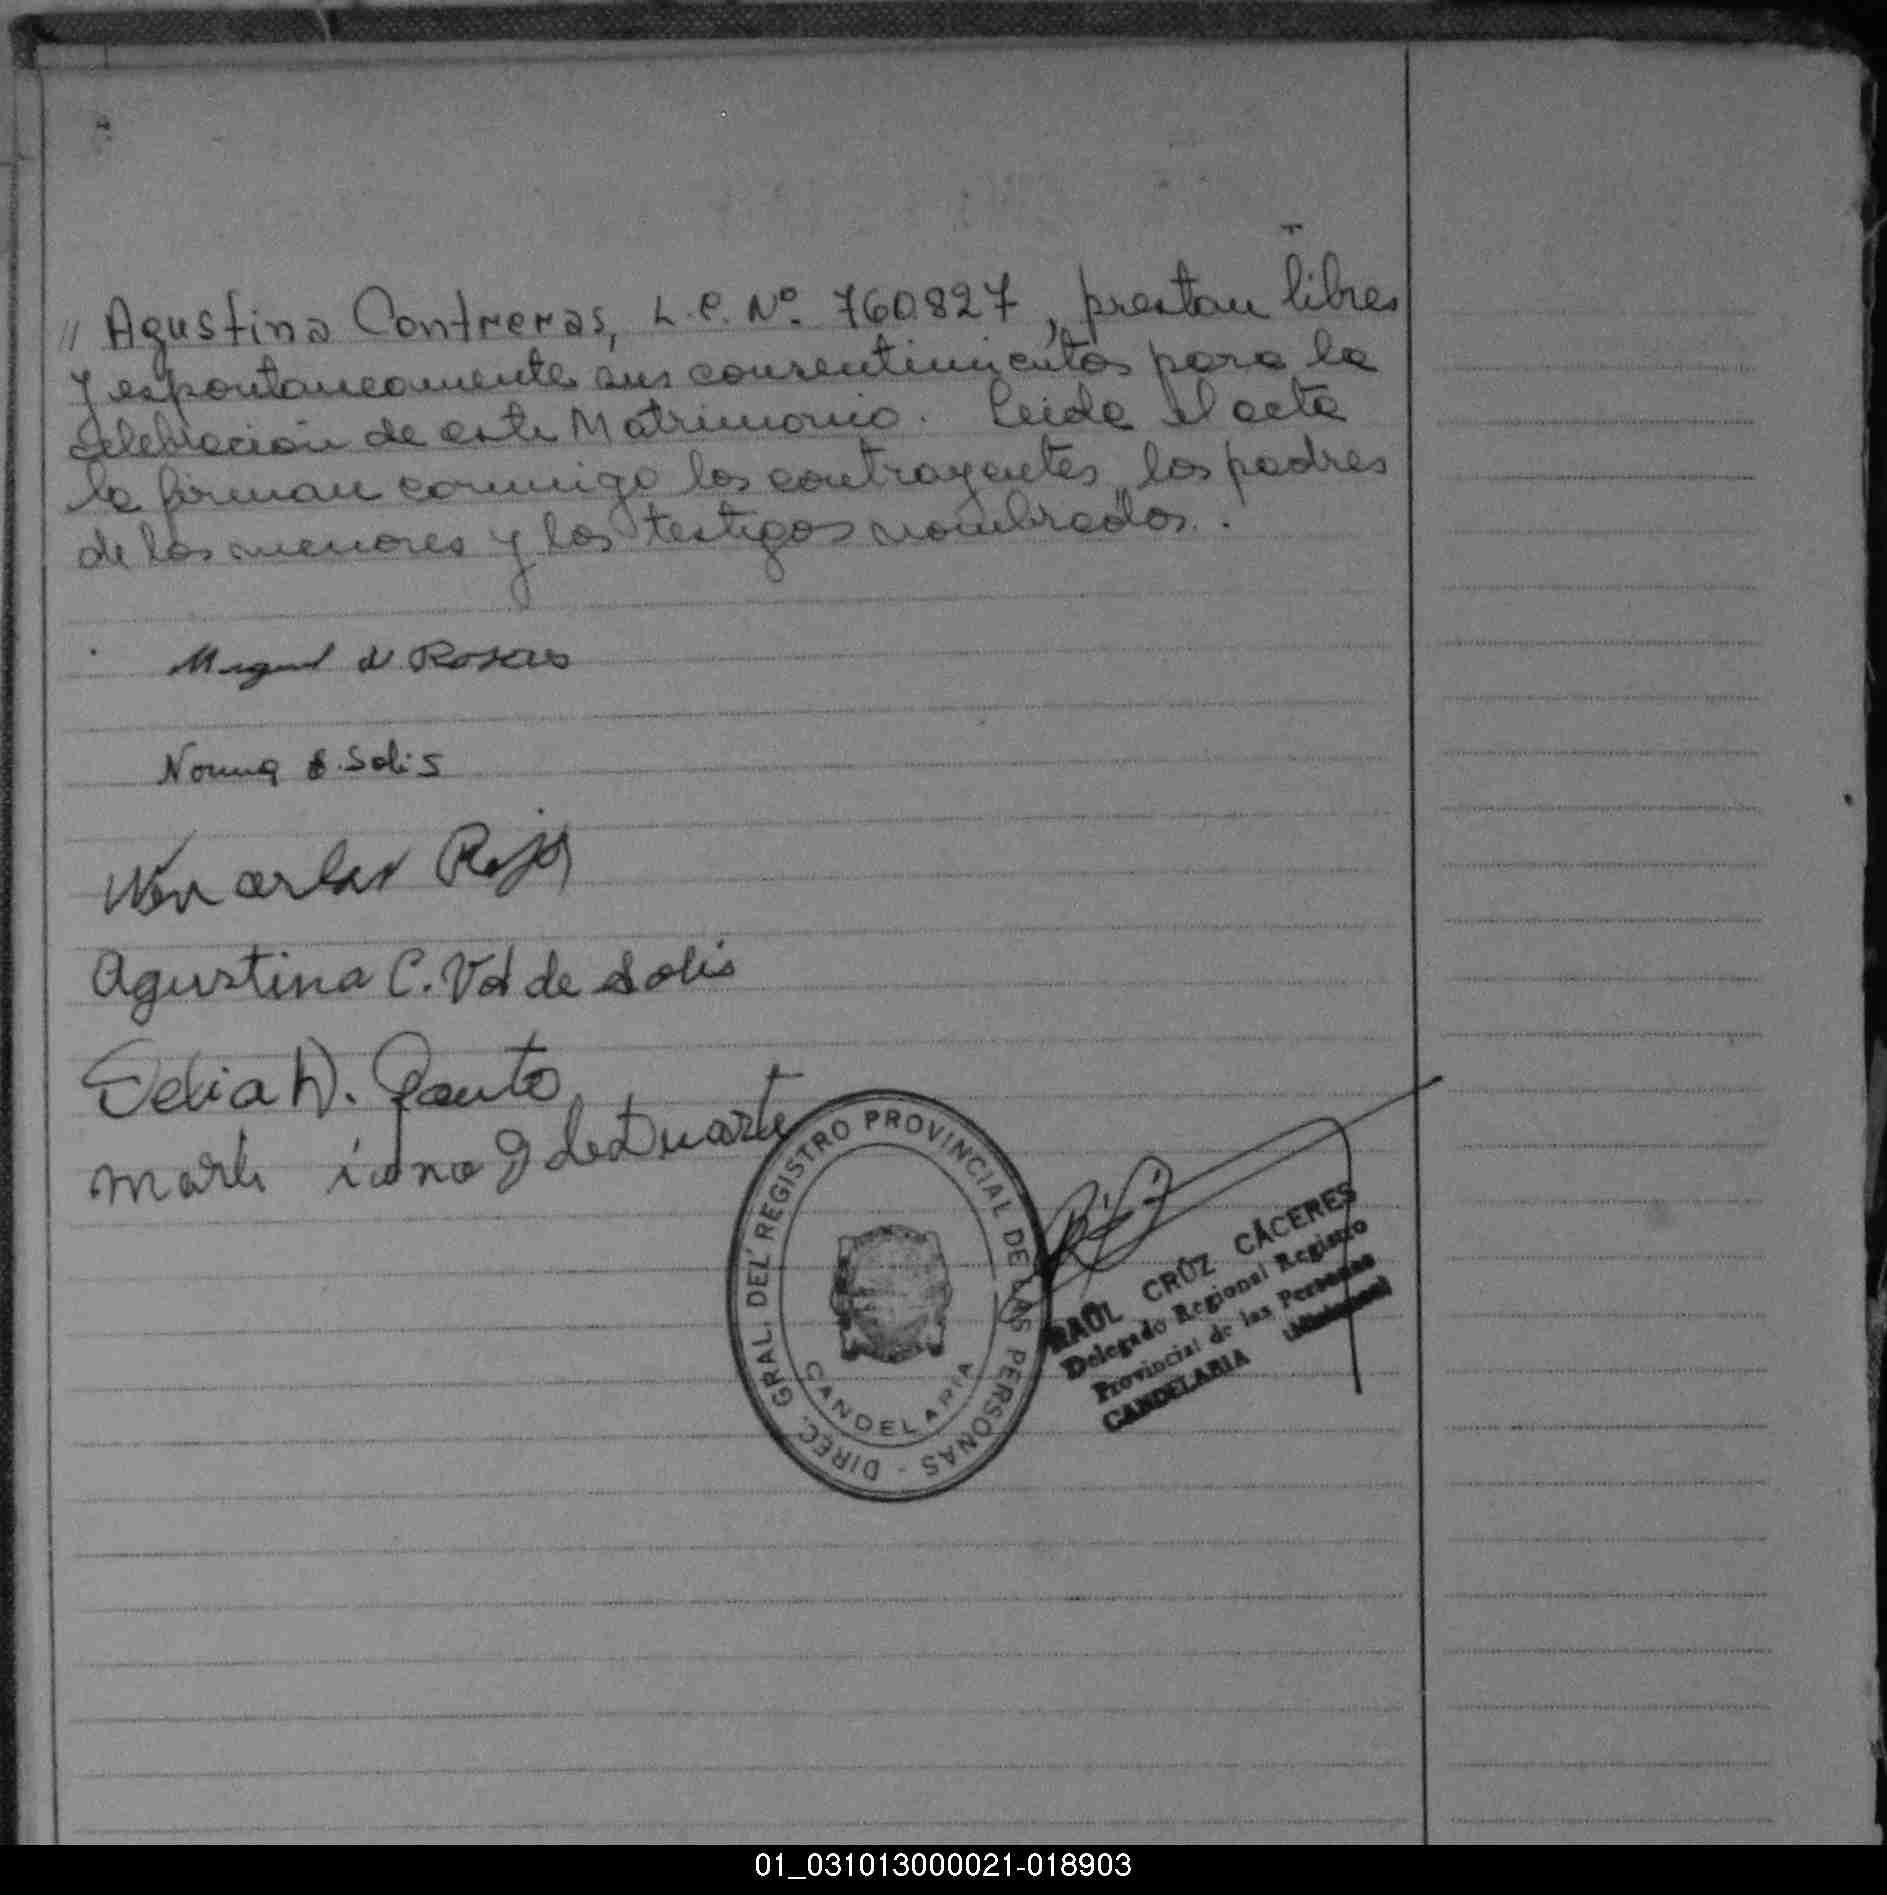 // Agustina Contreras, L.C. Nº. 760.827, prestan libres
y espontaneamente sus consentimientos para la
celebración de este Matrimonio. Leida el acta
la firman conmigo los contrayentes, los padres
de los menores y los testigos nombrados.
Miguel Rosas
Norma Solis
Agustina C. Vd de Solis
Delia
de Duarte
DIREC. GRAL. DEL REGISTRO PROVINCIAL DE LAS PERSONAS -
CANDELARIA
RAÚL CRÚZ CÁCERES
Delegado Regional Registro
Provincial de las Personas
CANDELARIA
01_031013000021-018903